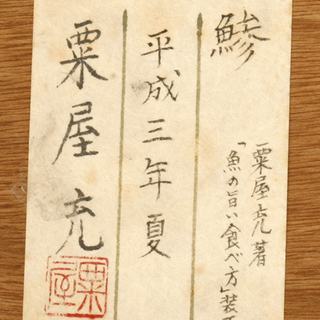 鯵
粟屋充著
「魚の旨い食べ方」装
平成三年夏
粟屋充
粟屋